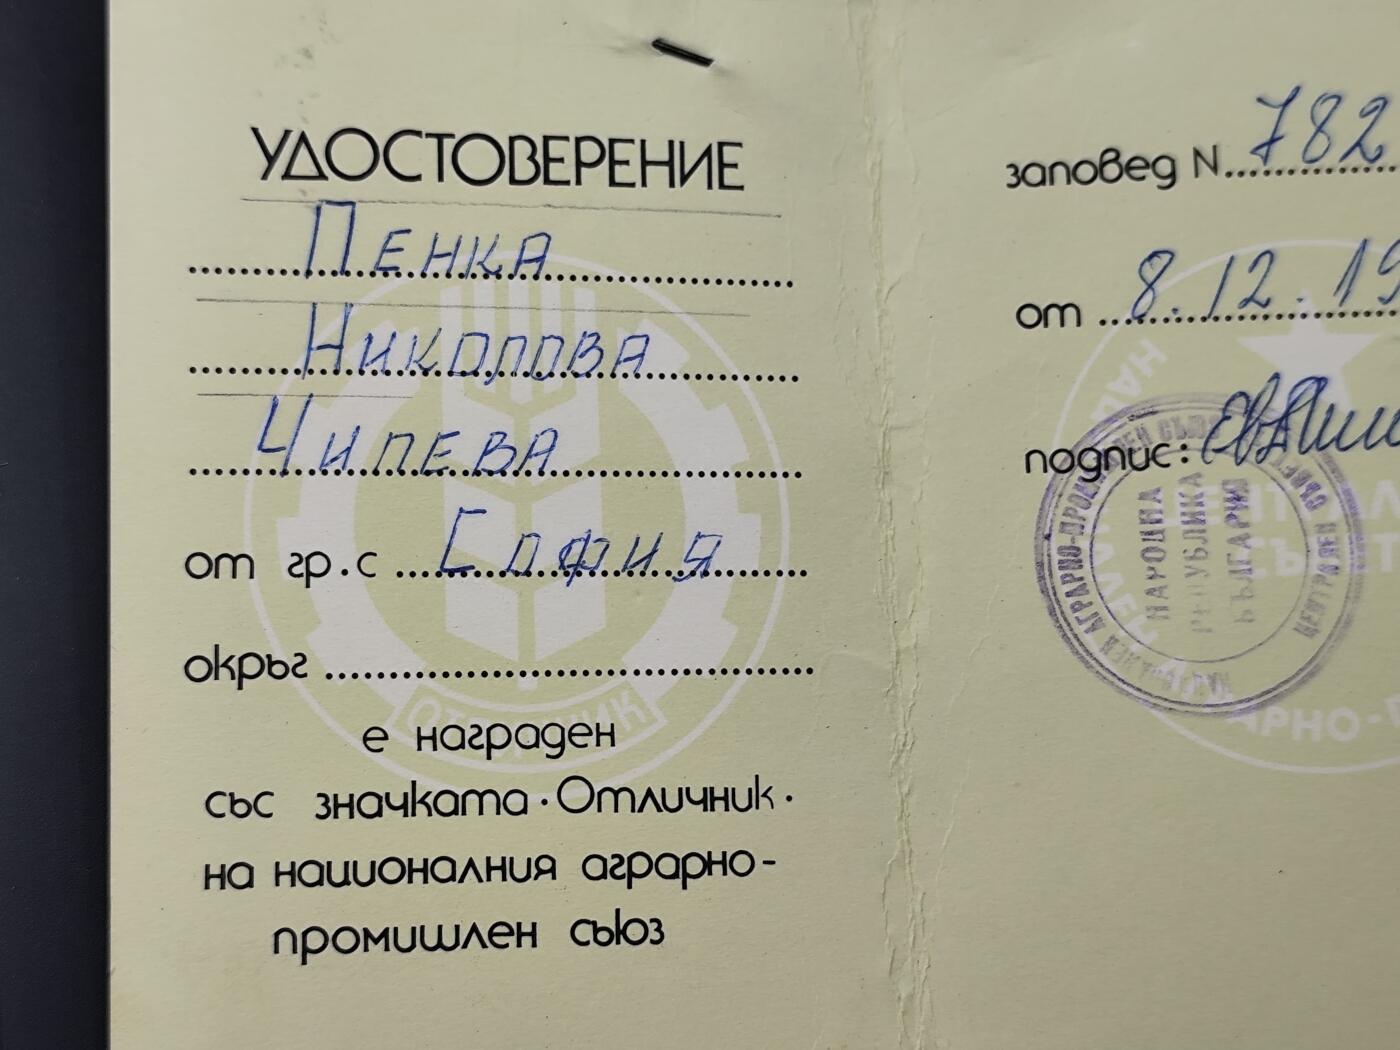 УДОСТОВЕРЕНИЕ
ПЕНКА
НИКОЛОВА
ЧИПЕВА
от гр.с СОФИЯ
окръг
е награден
със значката · Отличник ·
на националния аграрно-
промишлен съюз
заповед N 782
от 8.12.19
подпис:
НАРОДНА
РЕПУБЛИКА
БЪЛГАРИЯ
НАЦИОНАЛЕН АГРАРНО-ПРОМИШЛЕН СЪЮЗ
ЦЕНТРАЛЕН СЪВЕТ
ОТЛИЧНИК